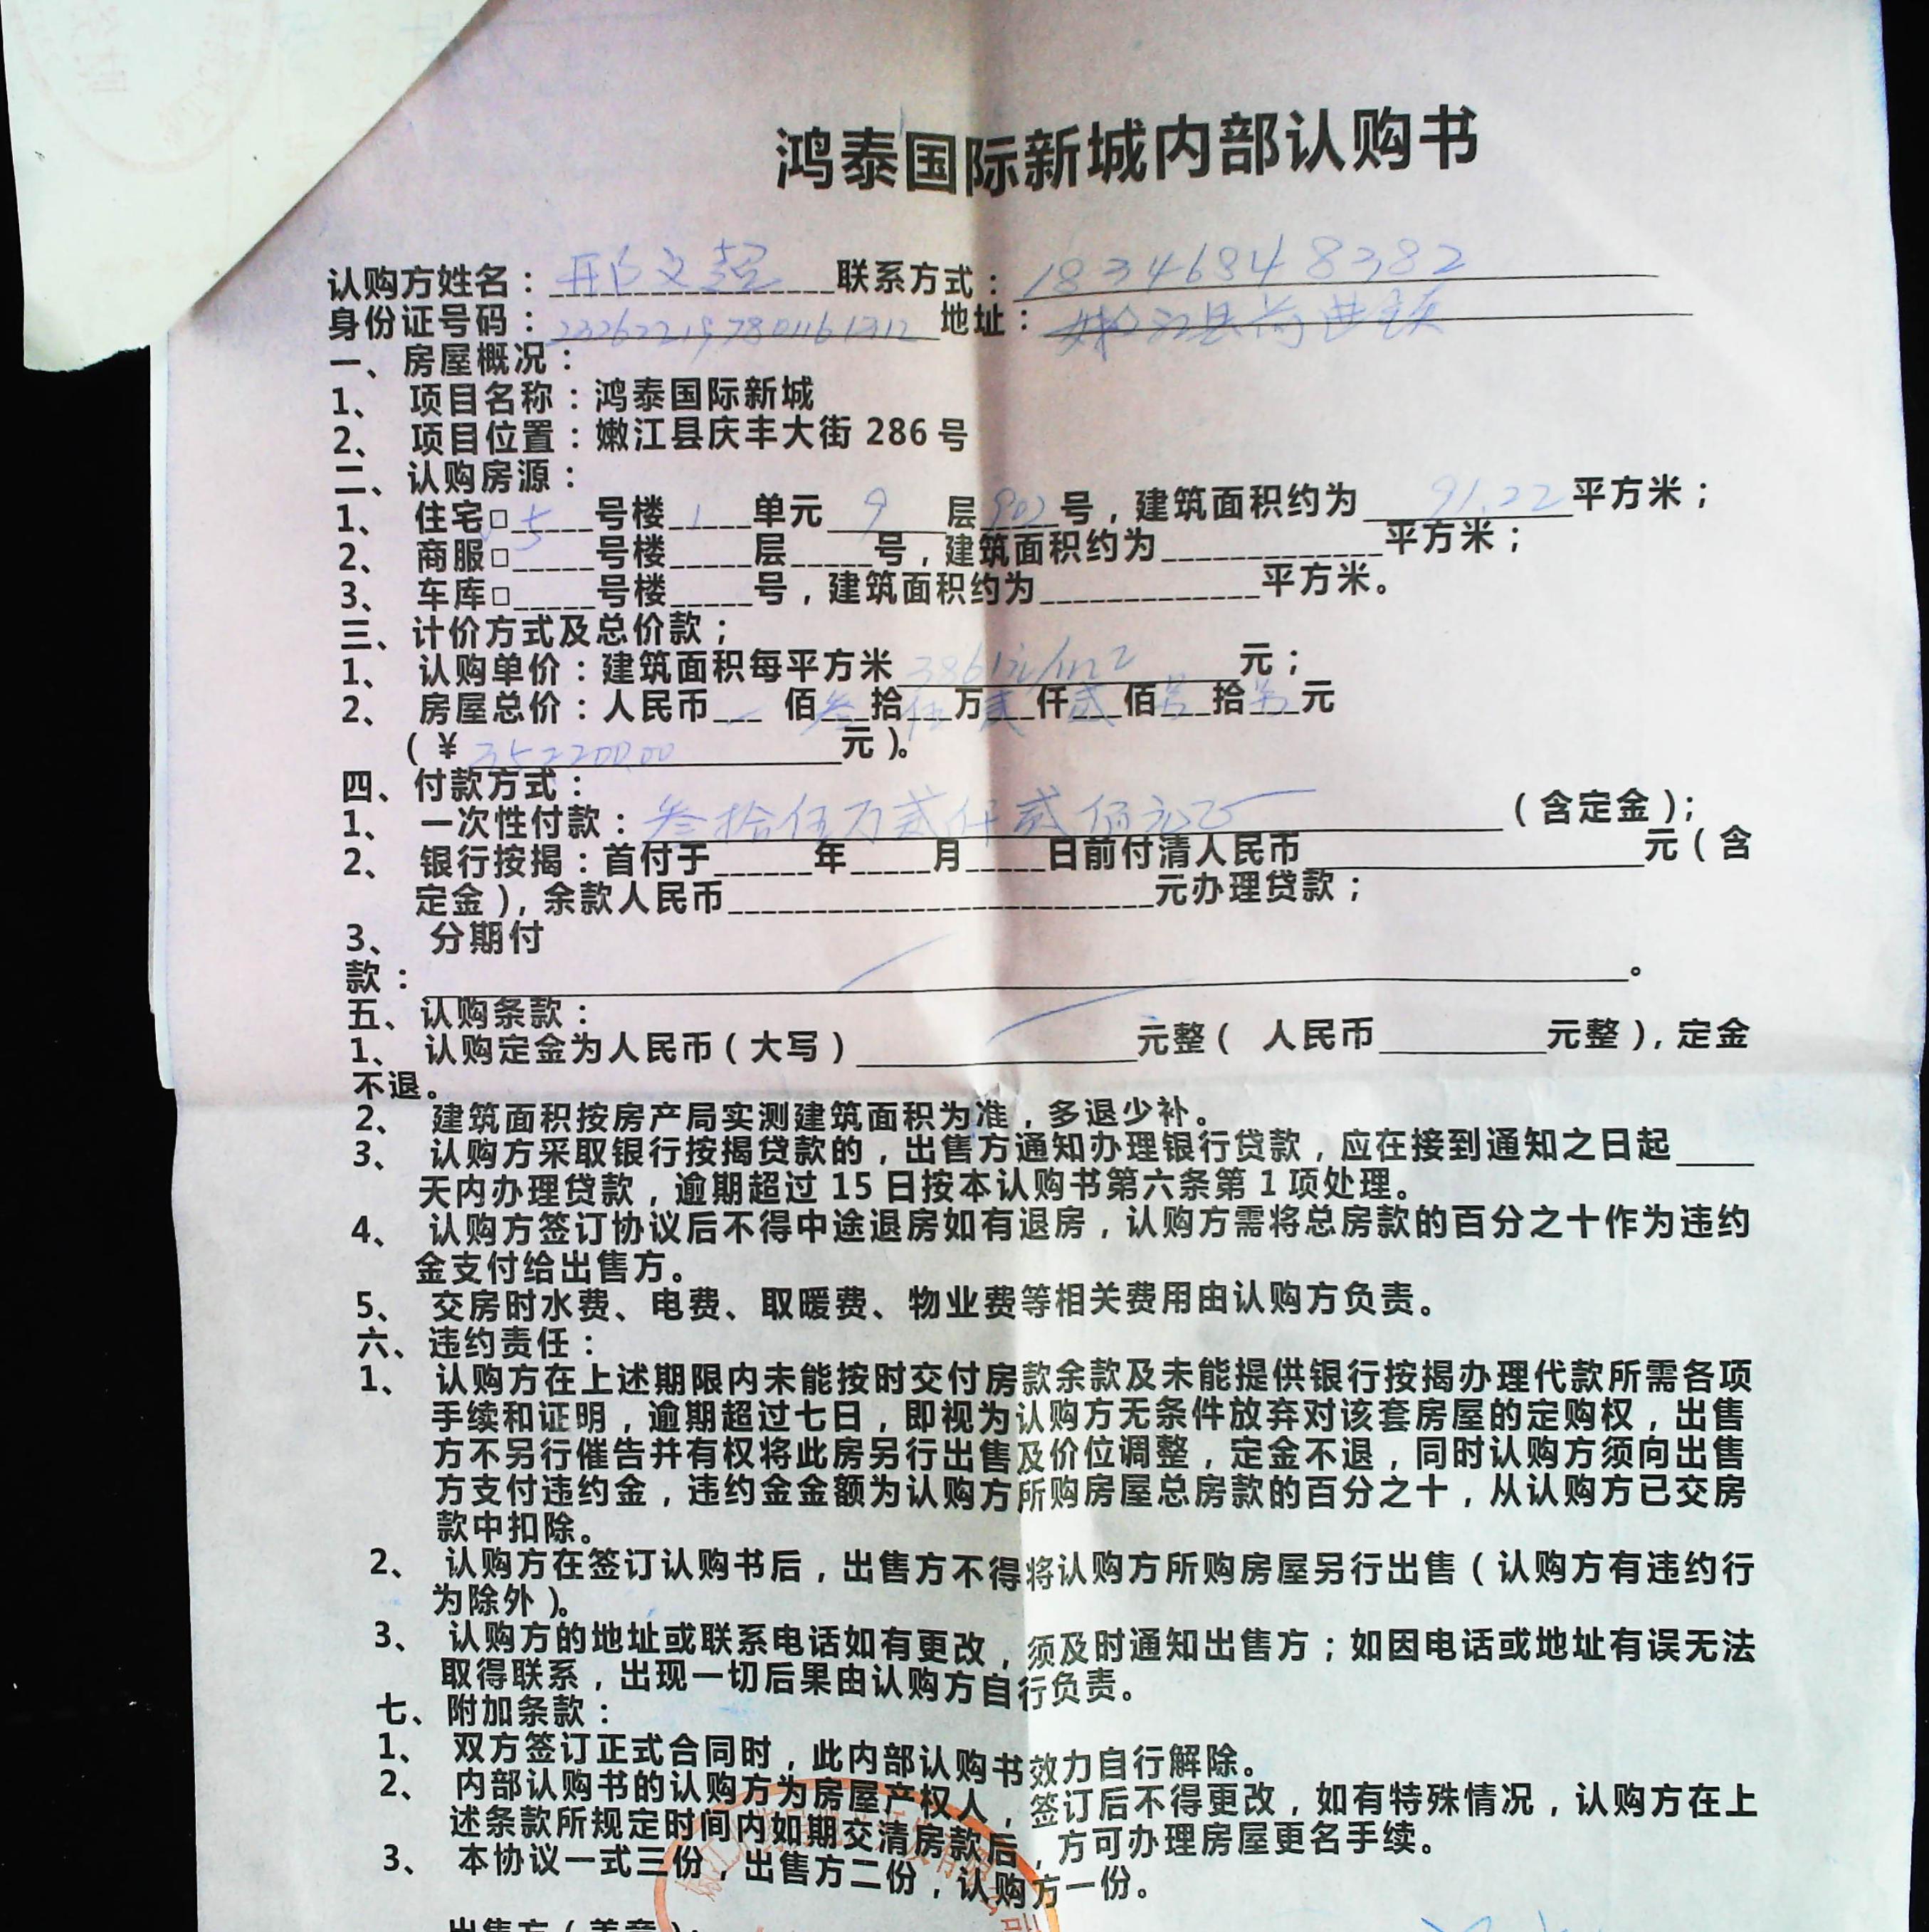 鸿泰国际新城内部认购书
认购方姓名：邢文超 联系方式：18346848382
身份证号码：232622197801161312 地址：嫩江县前进镇
一、房屋概况：
1、 项目名称：鸿泰国际新城
2、 项目位置：嫩江县庆丰大街 286 号
二、认购房源：
1、 住宅□ 5 号楼 1 单元 9 层 902 号，建筑面积约为 91.22 平方米；
2、 商服□_____号楼_____层_____号，建筑面积约为_____________平方米；
3、 车库□_____号楼_____号，建筑面积约为_____________平方米。
三、计价方式及总价款；
1、 认购单价：建筑面积每平方米 3861元/m2 元；
2、 房屋总价：人民币___ 佰 叁 拾 伍 万 贰 仟 贰 佰 拾 元
（￥352200.00 元）。
四、付款方式：
1、 一次性付款：叁拾伍万贰仟贰佰元正（含定金）；
2、 银行按揭：首付于______年_____月_____日前付清人民币____________________元（含
定金），余款人民币__________________________元办理贷款；
3、 分期付
款：____________________。
五、认购条款：
1、 认购定金为人民币（大写）_______________元整（ 人民币_________元整），定金
不退。
2、 建筑面积按房产局实测建筑面积为准，多退少补。
3、 认购方采取银行按揭贷款的，出售方通知办理银行贷款，应在接到通知之日起____
天内办理贷款，逾期超过 15 日按本认购书第六条第 1 项处理。
4、 认购方签订协议后不得中途退房如有退房，认购方需将总房款的百分之十作为违约
金支付给出售方。
5、 交房时水费、电费、取暖费、物业费等相关费用由认购方负责。
六、违约责任：
1、 认购方在上述期限内未能按时交付房款余款及未能提供银行按揭办理代款所需各项
手续和证明，逾期超过七日，即视为认购方无条件放弃对该套房屋的定购权，出售
方不另行催告并有权将此房另行出售及价位调整，定金不退，同时认购方须向出售
方支付违约金，违约金金额为认购方所购房屋总房款的百分之十，从认购方已交房
款中扣除。
2、 认购方在签订认购书后，出售方不得将认购方所购房屋另行出售（认购方有违约行
为除外）。
3、 认购方的地址或联系电话如有更改，须及时通知出售方；如因电话或地址有误无法
取得联系，出现一切后果由认购方自行负责。
七、附加条款：
1、 双方签订正式合同时，此内部认购书效力自行解除。
2、 内部认购书的认购方为房屋产权人，签订后不得更改，如有特殊情况，认购方在上
述条款所规定时间内如期交清房款后，方可办理房屋更名手续。
3、 本协议一式三份，出售方二份，认购方一份。
出售方（盖章）：